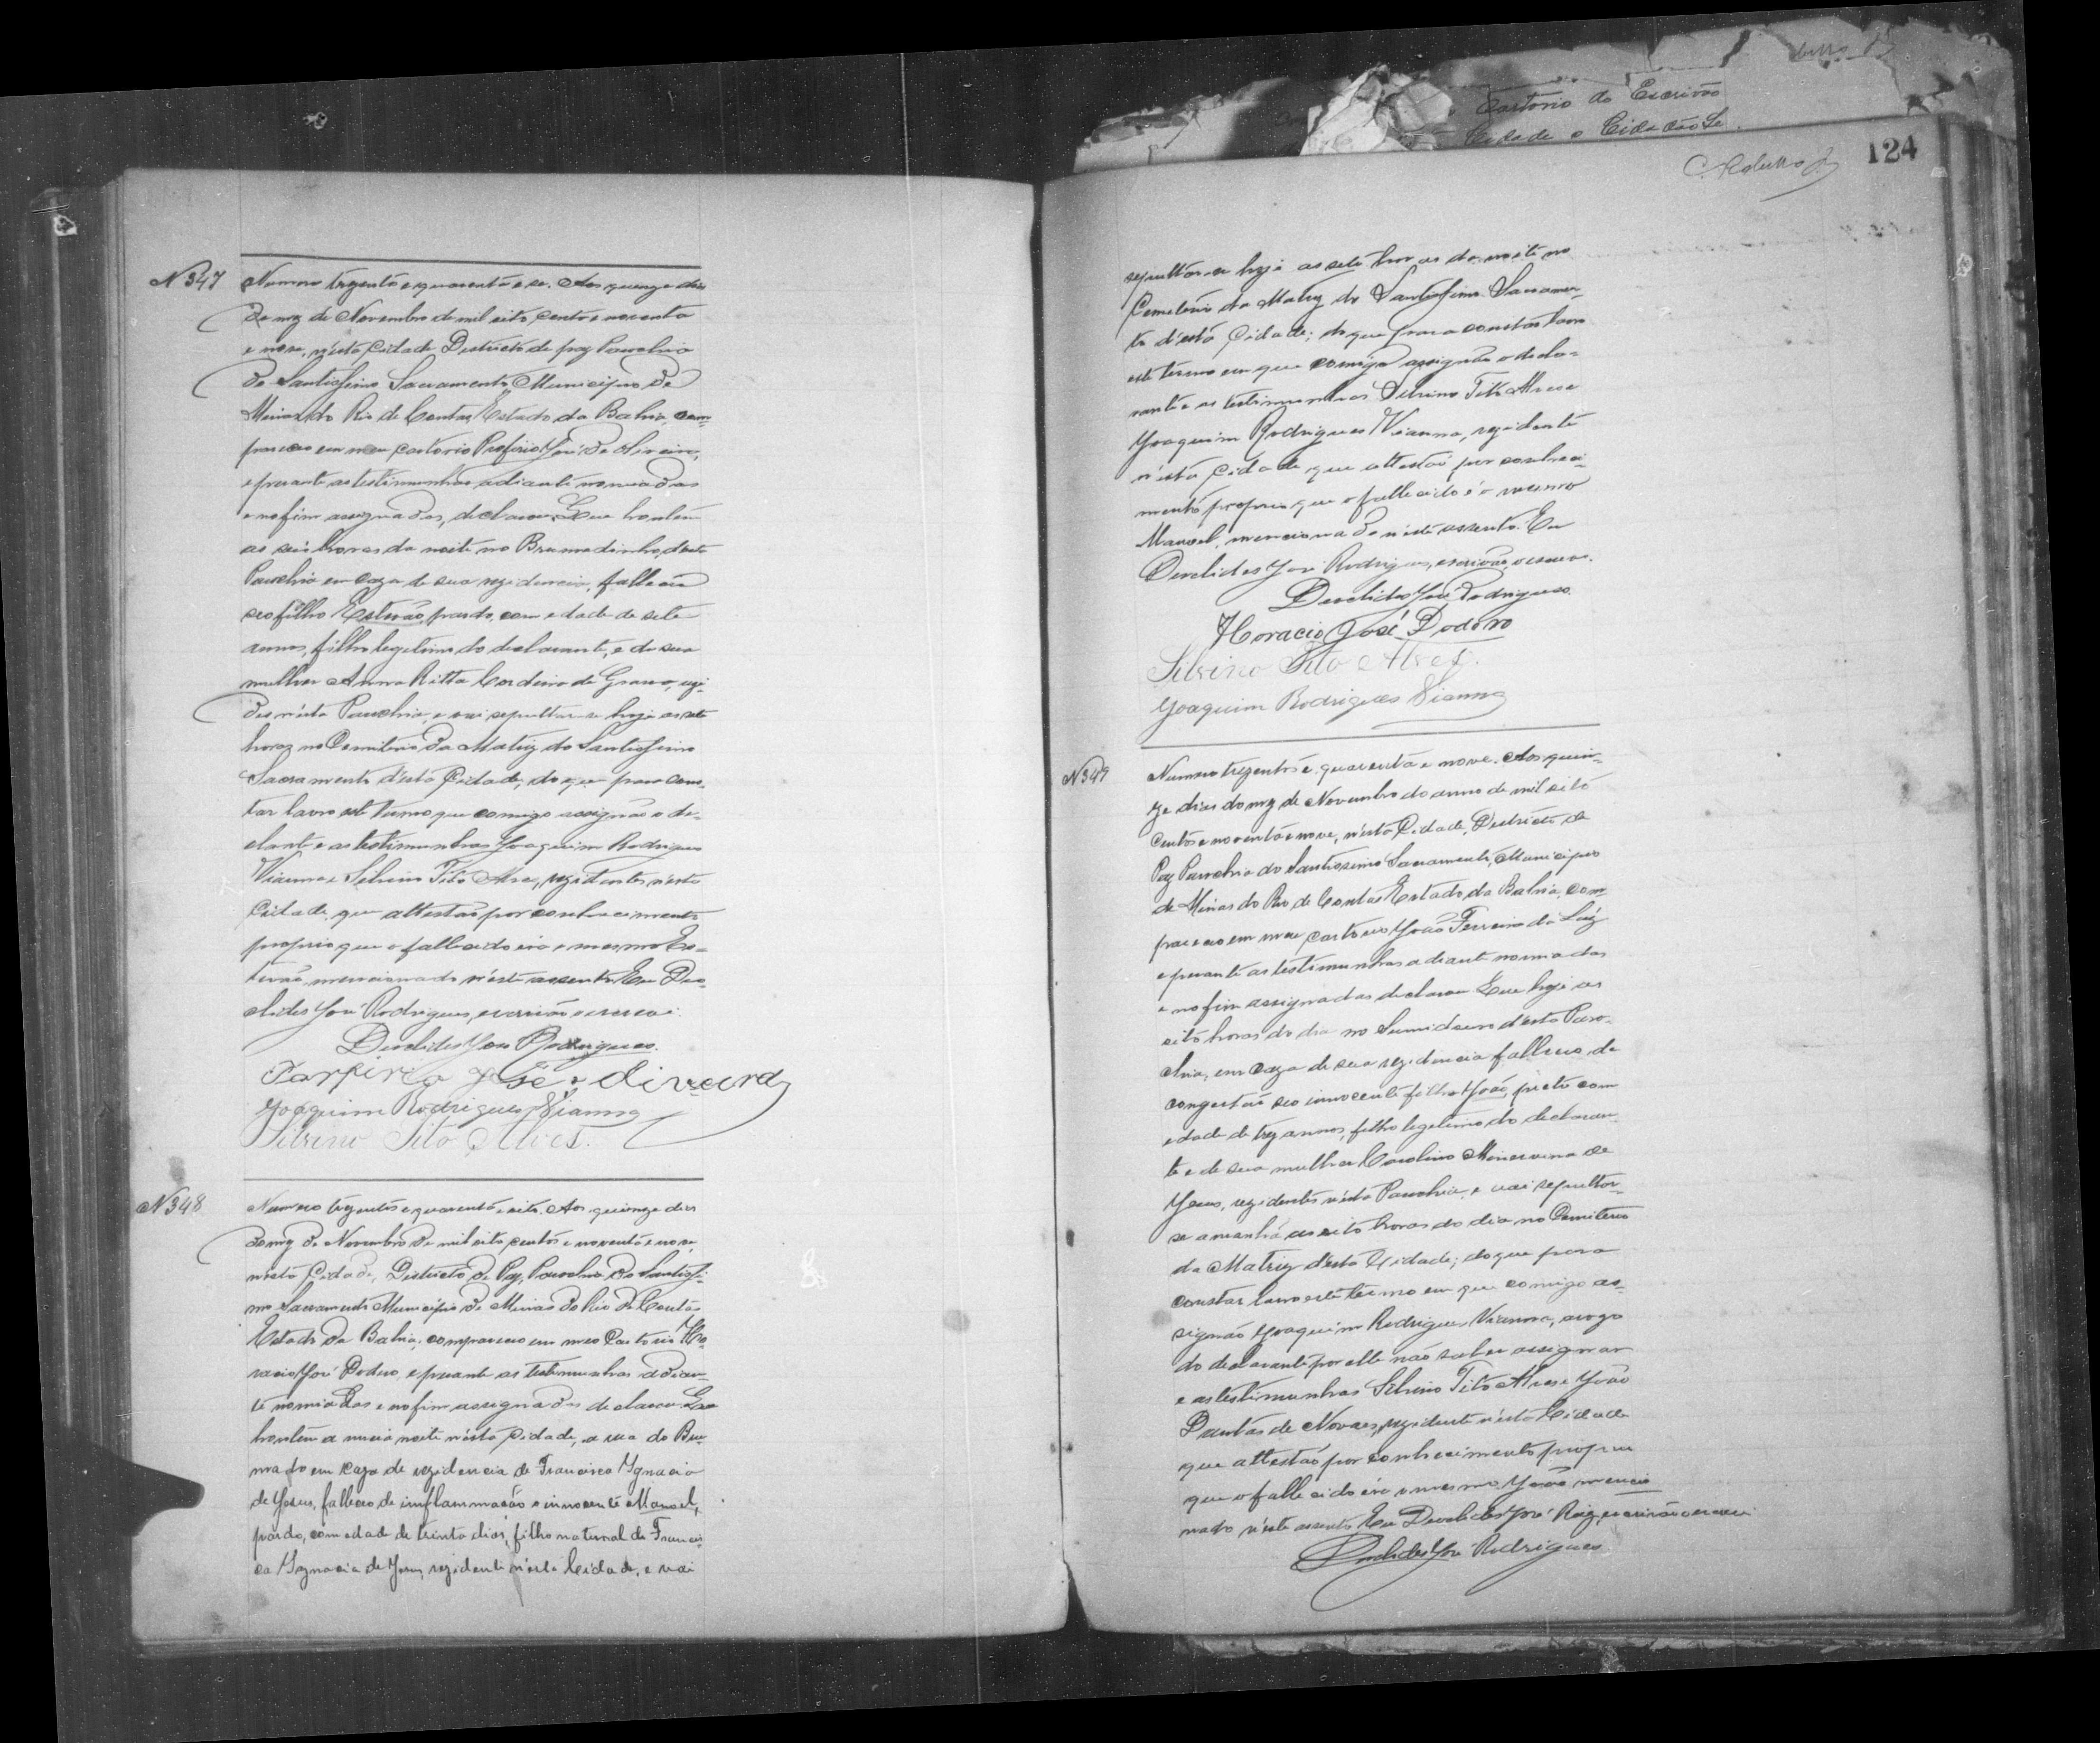 Cartorio do Escrivão
124
N 347
Numero trezentos e quarenta e se. Aos quinze dias
do mez de Novembro de mil oito centos e noventa
e nove, n'esta Cidade Districto de paz Parochia
do Santissimo Sacramento, Municipio de
Minas do Rio de Contas, Estado da Bahia, com-
pareceo em meu cartorio Porfirio José de Oliveira,
e perante as testimunhas adiante nomiadas
e no fim assignadas, declarou: Que hontem
as seis horas da noite no Brumadinho, desta
Parochia em caza de sua rezidencia, falleceu
seo filho Estevão, pardo, com edade de sete
annos, filho legitimo do declarante, e de sua
mulher Anna Ritta Cordeiro de Grasso, rezi-
des n'esta Parochia, e vai sepultar-se hoje as sete
horas no Cemiterio da Matriz do Santissimo
Sacramento d'esta Cidade, do que para cons-
tar lavro este termo que comigo assignão o de-
clante e as testimunhas Joaquim Rodrigues
Vianna e Silvino Tito Alves, rezidentes n'esta
Cidade, que attestão por conhecimento
proprio que o fallecido é o mesmo Es-
tevão mencionado n'este assento. Eu Deo-
clides José Rodrigues, escrivão o escrevi.
Deoclides José Rodrigues.
Porfirio José de Oliveira
Joaquim Rodrigues Vianna
Silvino Tito Alves.
N 348
Numero trezentos e quarenta e oito. Aos quinze dias
do mez de Novembro de mil oito centos e noventa e nove,
n'esta Cidade, Districto de Paz, Parochia do Santissi-
mo Sacramento Municipio de Minas do Rio de Contas,
Estado da Bahia, compareceo em meo Cartorio Ho-
racio José Dodoro, e perante as testimunhas adian-
te nomiadas e no fim assignadas declarou: Que
hontem a meia noite n'esta Cidade, a rua do Bru-
mado em caza de rezidencia de Francisca Ignacia
de Jesus, falleceo de inflammação o innocente Manoel,
pardo, com edade de trinta dias, filho natural de Francis-
ca Ignacia de Jesus, rezidente n'esta Cidade, e vai
sepultar-se hoje as sete horas da noite no
Cemiterio da Matriz do Santissimo Sacramen-
to d'esta Cidade; do que para constar lavro
este termo em que comigo assignão o decla-
rante e as testimunhas Silvino Tito Alves e
Joaquim Rodrigues Vianna, rezidente
n'esta Cidade que attestão por conheci-
mento proprio que o fallecido é o mesmo
Manoel, mencionado n'este assento. Eu
Deoclides José Rodrigues, escrivão, o escrevi.
Deoclides José Rodrigues.
Horacio José Dodoro
Silvino Tito Alves.
Joaquim Rodrigues Vianna
N 349
Numero trezentos e quarenta e nove. Aos quin-
ze dias do mez de Novembro do anno de mil oito
centos e noventa e nove, n'esta Cidade, Districto de
Paz Parochia do Santissimo Sacramento, Municipio
de Minas do Rio de Contas Estado da Bahia, com
pareceo em meu cartorio João Ferreira da Luz
e perante as testimunhas adiante nomiadas
e no fim assignadas declarou: Que hoje as
oito horas do dia no Sumidouro d'esta Paro-
chia, em caza de sua rezidencia falleceo de
congestão seo innocente filho João, preto com
edade de trez annos, filho legitimo do declaran-
te e de sua mulher Carolina Minervina de
Jesus, rezidentes n'esta Parochia, e vai sepultar-
se amanhã as oito horas do dia no Cemiterio
da Matriz d'esta Cidade; do que para
constar lavro este termo em que comigo as-
signão Joaquim Rodrigues Vianna, arogo
do declarante por elle não saber assignar
e as testimunhas Silvino Tito Alves e João
Dantas de Novaes, rezidente n'esta Cidade
que attestão por conhecimento proprio
que o fallecido é o mesmo João mencio
nado n'este assento. Eu Deoclides José Roiz, escrivão o escrevi
Deoclides José Rodrigues